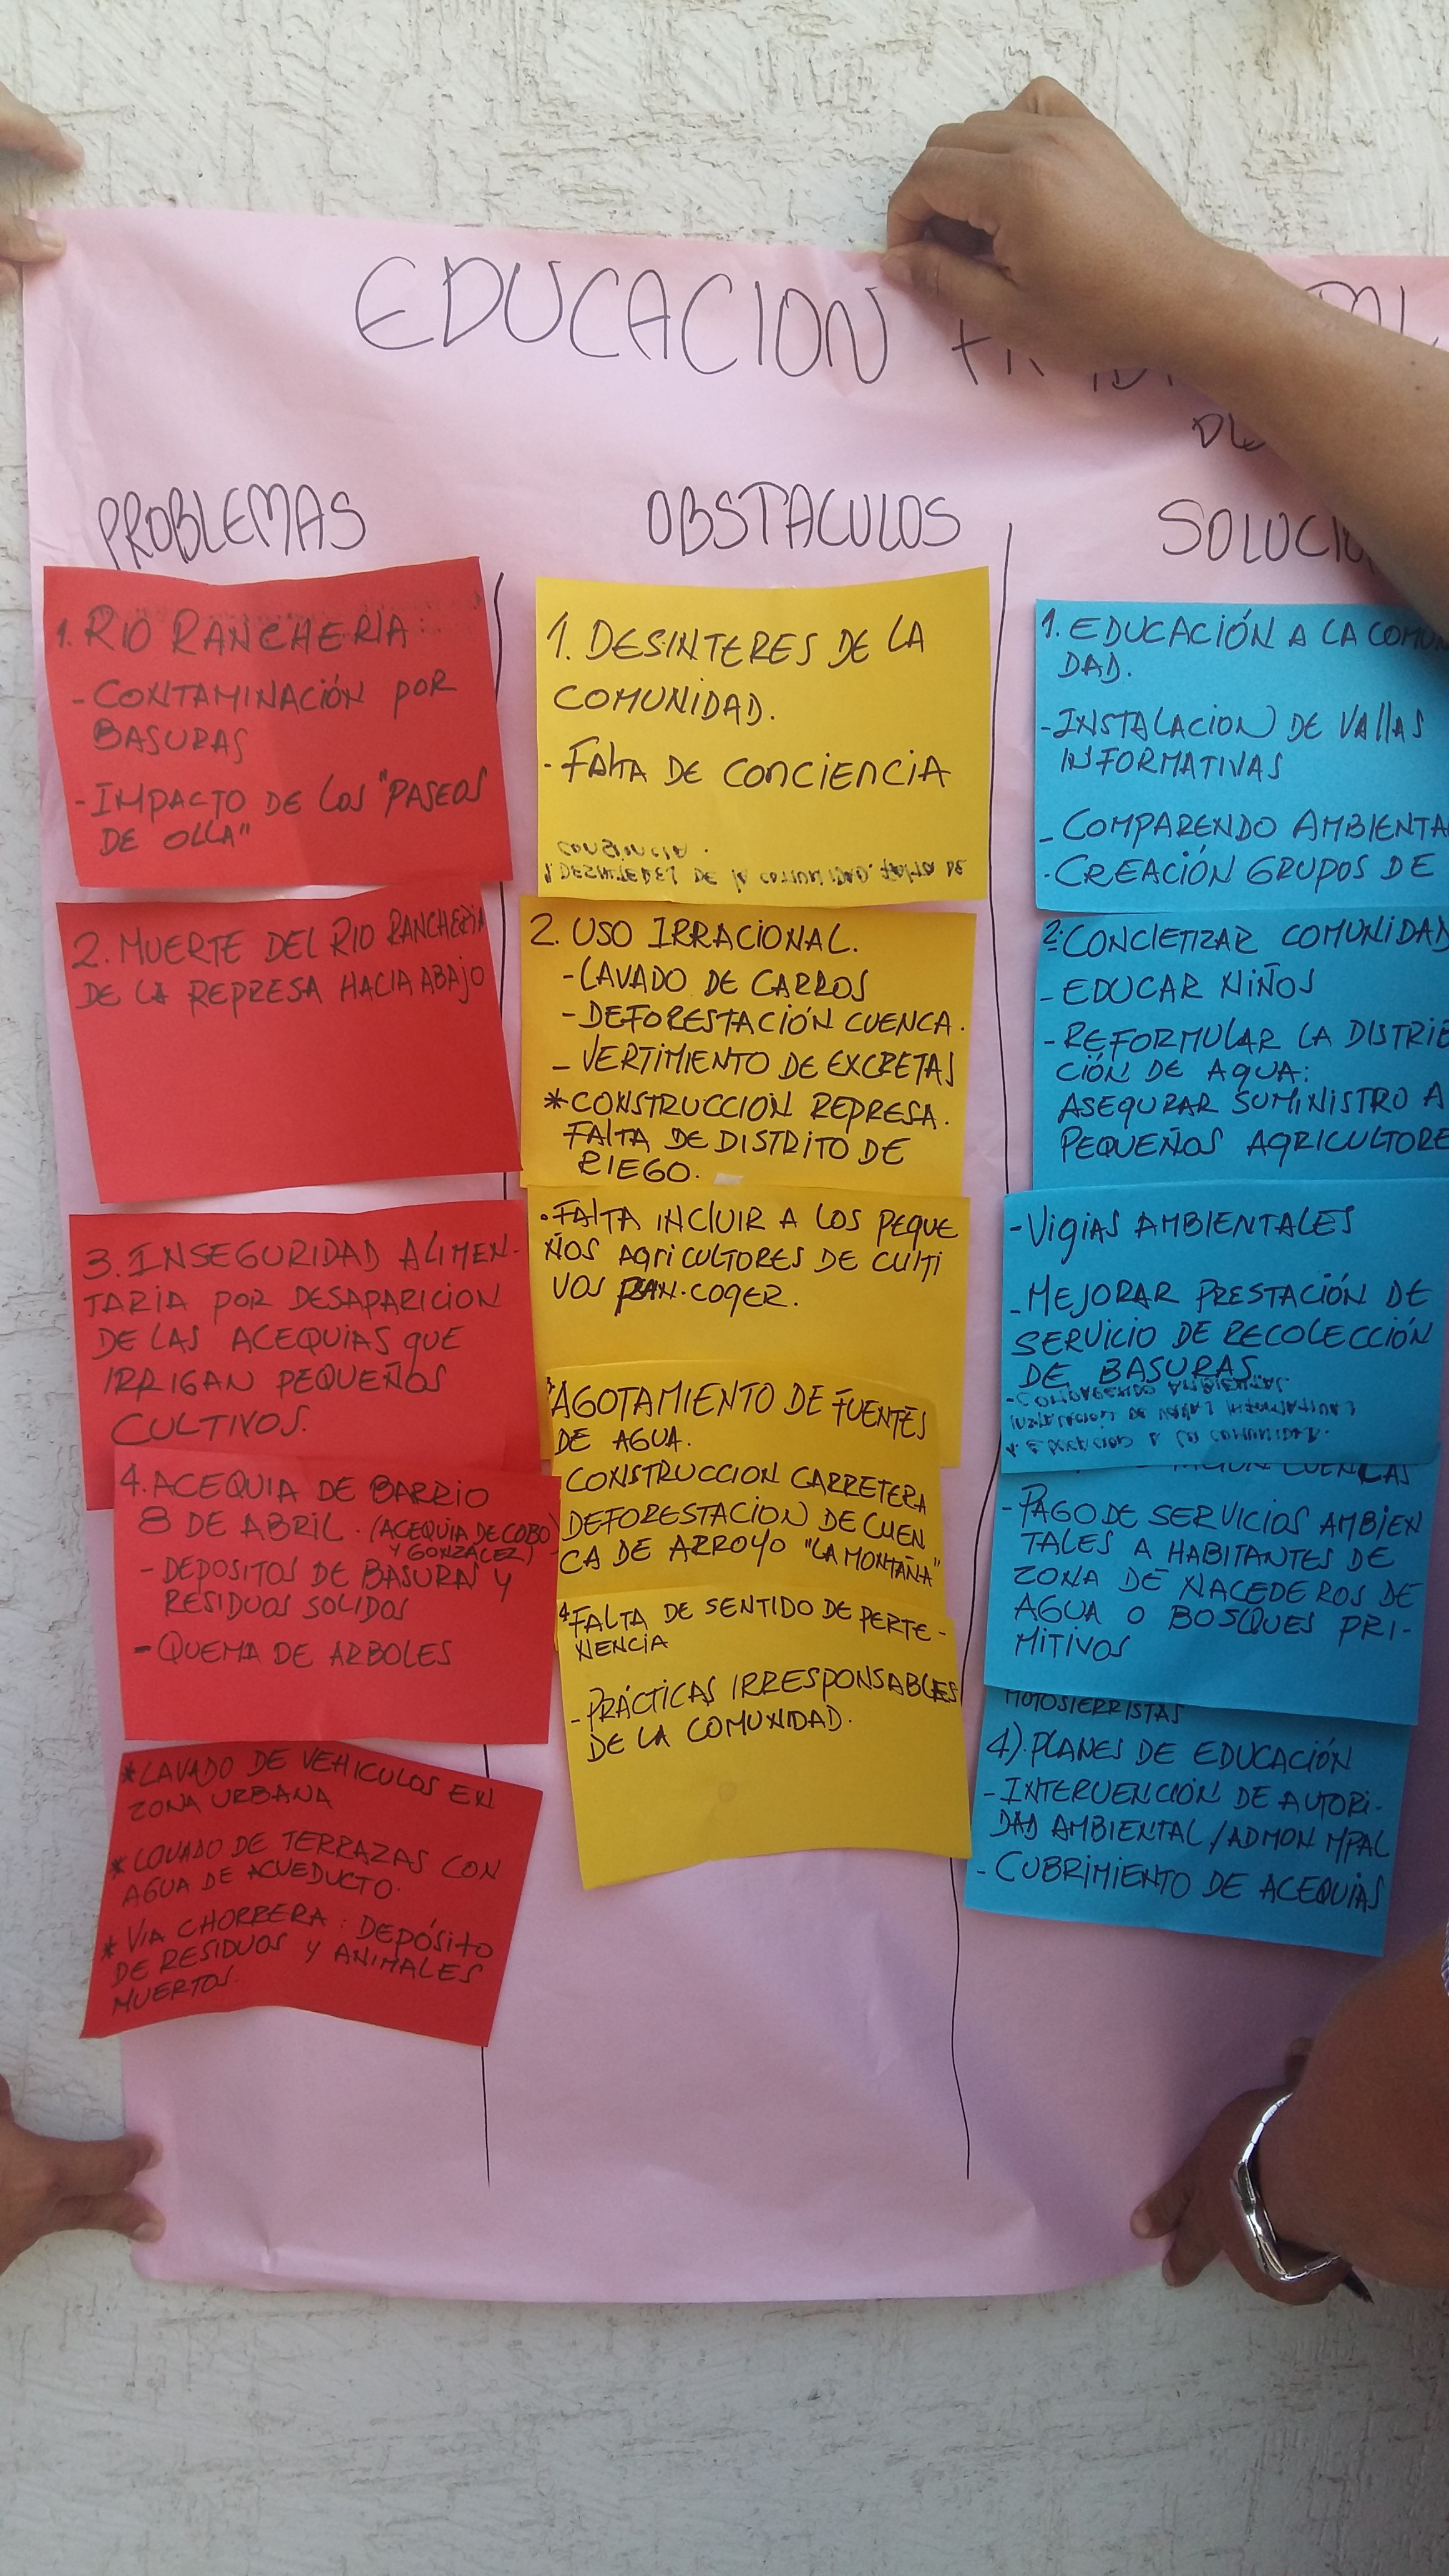 EDUCACION
PROBLEMAS
1. RIO RANCHERIA
- CONTAMINACIÓN POR
BASURAS
- IMPACTO DE LOS "PASEOS
DE OLLA"
2. MUERTE DEL RIO RANCHERIA
DE LA REPRESA HACIA ABAJO
3. INSEGURIDAD ALIMEN-
TARIA POR DESAPARICION
DE LAS ACEQUIAS QUE
IRRIGAN PEQUEÑOS
CULTIVOS.
4. ACEQUIA DE BARRIO
8 DE ABRIL. (ACEQUIA DE COBO
Y GONZÁLEZ)
- DEPOSITOS DE BASURAS Y
RESIDUOS SOLIDOS
- QUEMA DE ARBOLES
* LAVADO DE VEHICULOS EN
ZONA URBANA
* LOVADO DE TERRAZAS CON
AGUA DE ACUEDUCTO.
* VIA CHORRERA: DEPÓSITO
DE RESIDUOS Y ANIMALES
MUERTOS.
OBSTACULOS
1. DESINTERES DE LA
COMUNIDAD.
- FALTA DE CONCIENCIA
2. USO IRRACIONAL.
- LAVADO DE CARROS
- DEFORESTACIÓN CUENCA.
- VERTIMIENTO DE EXCRETAS
* CONSTRUCCION REPRESA.
FALTA DE DISTRITO DE
RIEGO.
. FALTA INCLUIR A LOS PEQUE
ÑOS AGRICULTORES DE CULTI
VOS PAN-COGER.
* AGOTAMIENTO DE FUENTES
DE AGUA.
CONSTRUCCION CARRETERA
DEFORESTACION DE CUEN
CA DE ARROYO "LA MONTAÑA"
4 FALTA DE SENTIDO DE PERTE-
NENCIA
- PRÁCTICAS IRRESPONSABLES
DE LA COMUNIDAD.
SOLUCIO
1. EDUCACIÓN A LA COMUNI
DAD.
- INSTALACION DE VALLAS
INFORMATIVAS
- COMPARENDO AMBIENTA
- CREACIÓN GRUPOS DE
2. CONCIETIZAR COMUNIDAD
- EDUCAR NIÑOS
- REFORMULAR LA DISTRIB
CIÓN DE AGUA:
ASEGURAR SUMINISTRO A
PEQUEÑOS AGRICULTORE
- VIGIAS AMBIENTALES
- MEJORAR PRESTACIÓN DE
SERVICIO DE RECOLECCIÓN
DE BASURAS
CUENCAS
- PAGO DE SERVICIOS AMBIEN
TALES A HABITANTES DE
ZONA DE NACEDEROS DE
AGUA O BOSQUES PRI-
MITIVOS
MOTOSIERRISTAS
4). PLANES DE EDUCACIÓN
- INTERVENCIÓN DE AUTORI-
DAD AMBIENTAL/ADMON MPAL
- CUBRIMIENTO DE ACEQUIAS